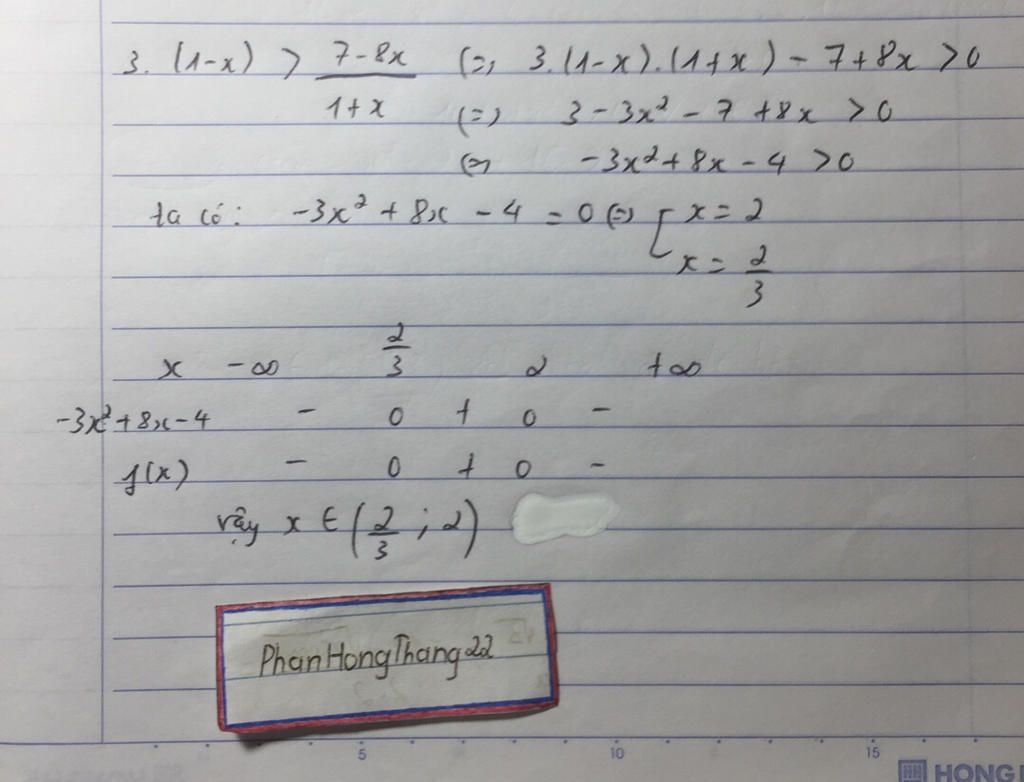 3. (1-x) > \frac{7-8x}{1+x} (=) 3.(1-x).(1+x) - 7+8x > 0
(=) 3 - 3x² - 7 + 8x > 0
(=) -3x² + 8x - 4 > 0
ta có: -3x² + 8x - 4 = 0 (=) [ x = 2
x = \frac{2}{3}
x -∞ \frac{2}{3} 2 +∞
-3x² + 8x - 4 - 0 + 0 -
f(x) - 0 + 0 -
vậy x ∈ (\frac{2}{3} ; 2)
PhanHongThang22
5 10 15
HONG